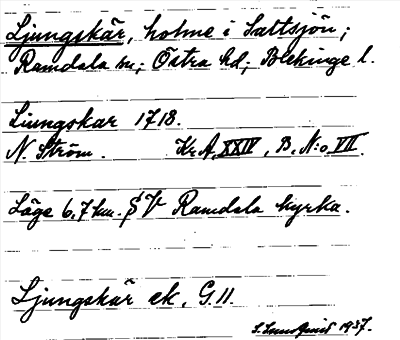 Ljungskär, holme i Saltsjön;
Ramdala sn; Östra hd; Blekinge l.
Liungskar 1718.
N. Ström. Kr.A. XXIV, B, N:o VII.
Läge 6,7 km. S V Ramdala kyrka.
Ljungskär ek. G.11.
1937.